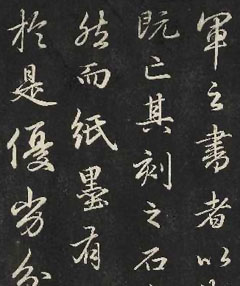 軍之書者以
既亡其刻之石
然而紙墨有
於是優劣分